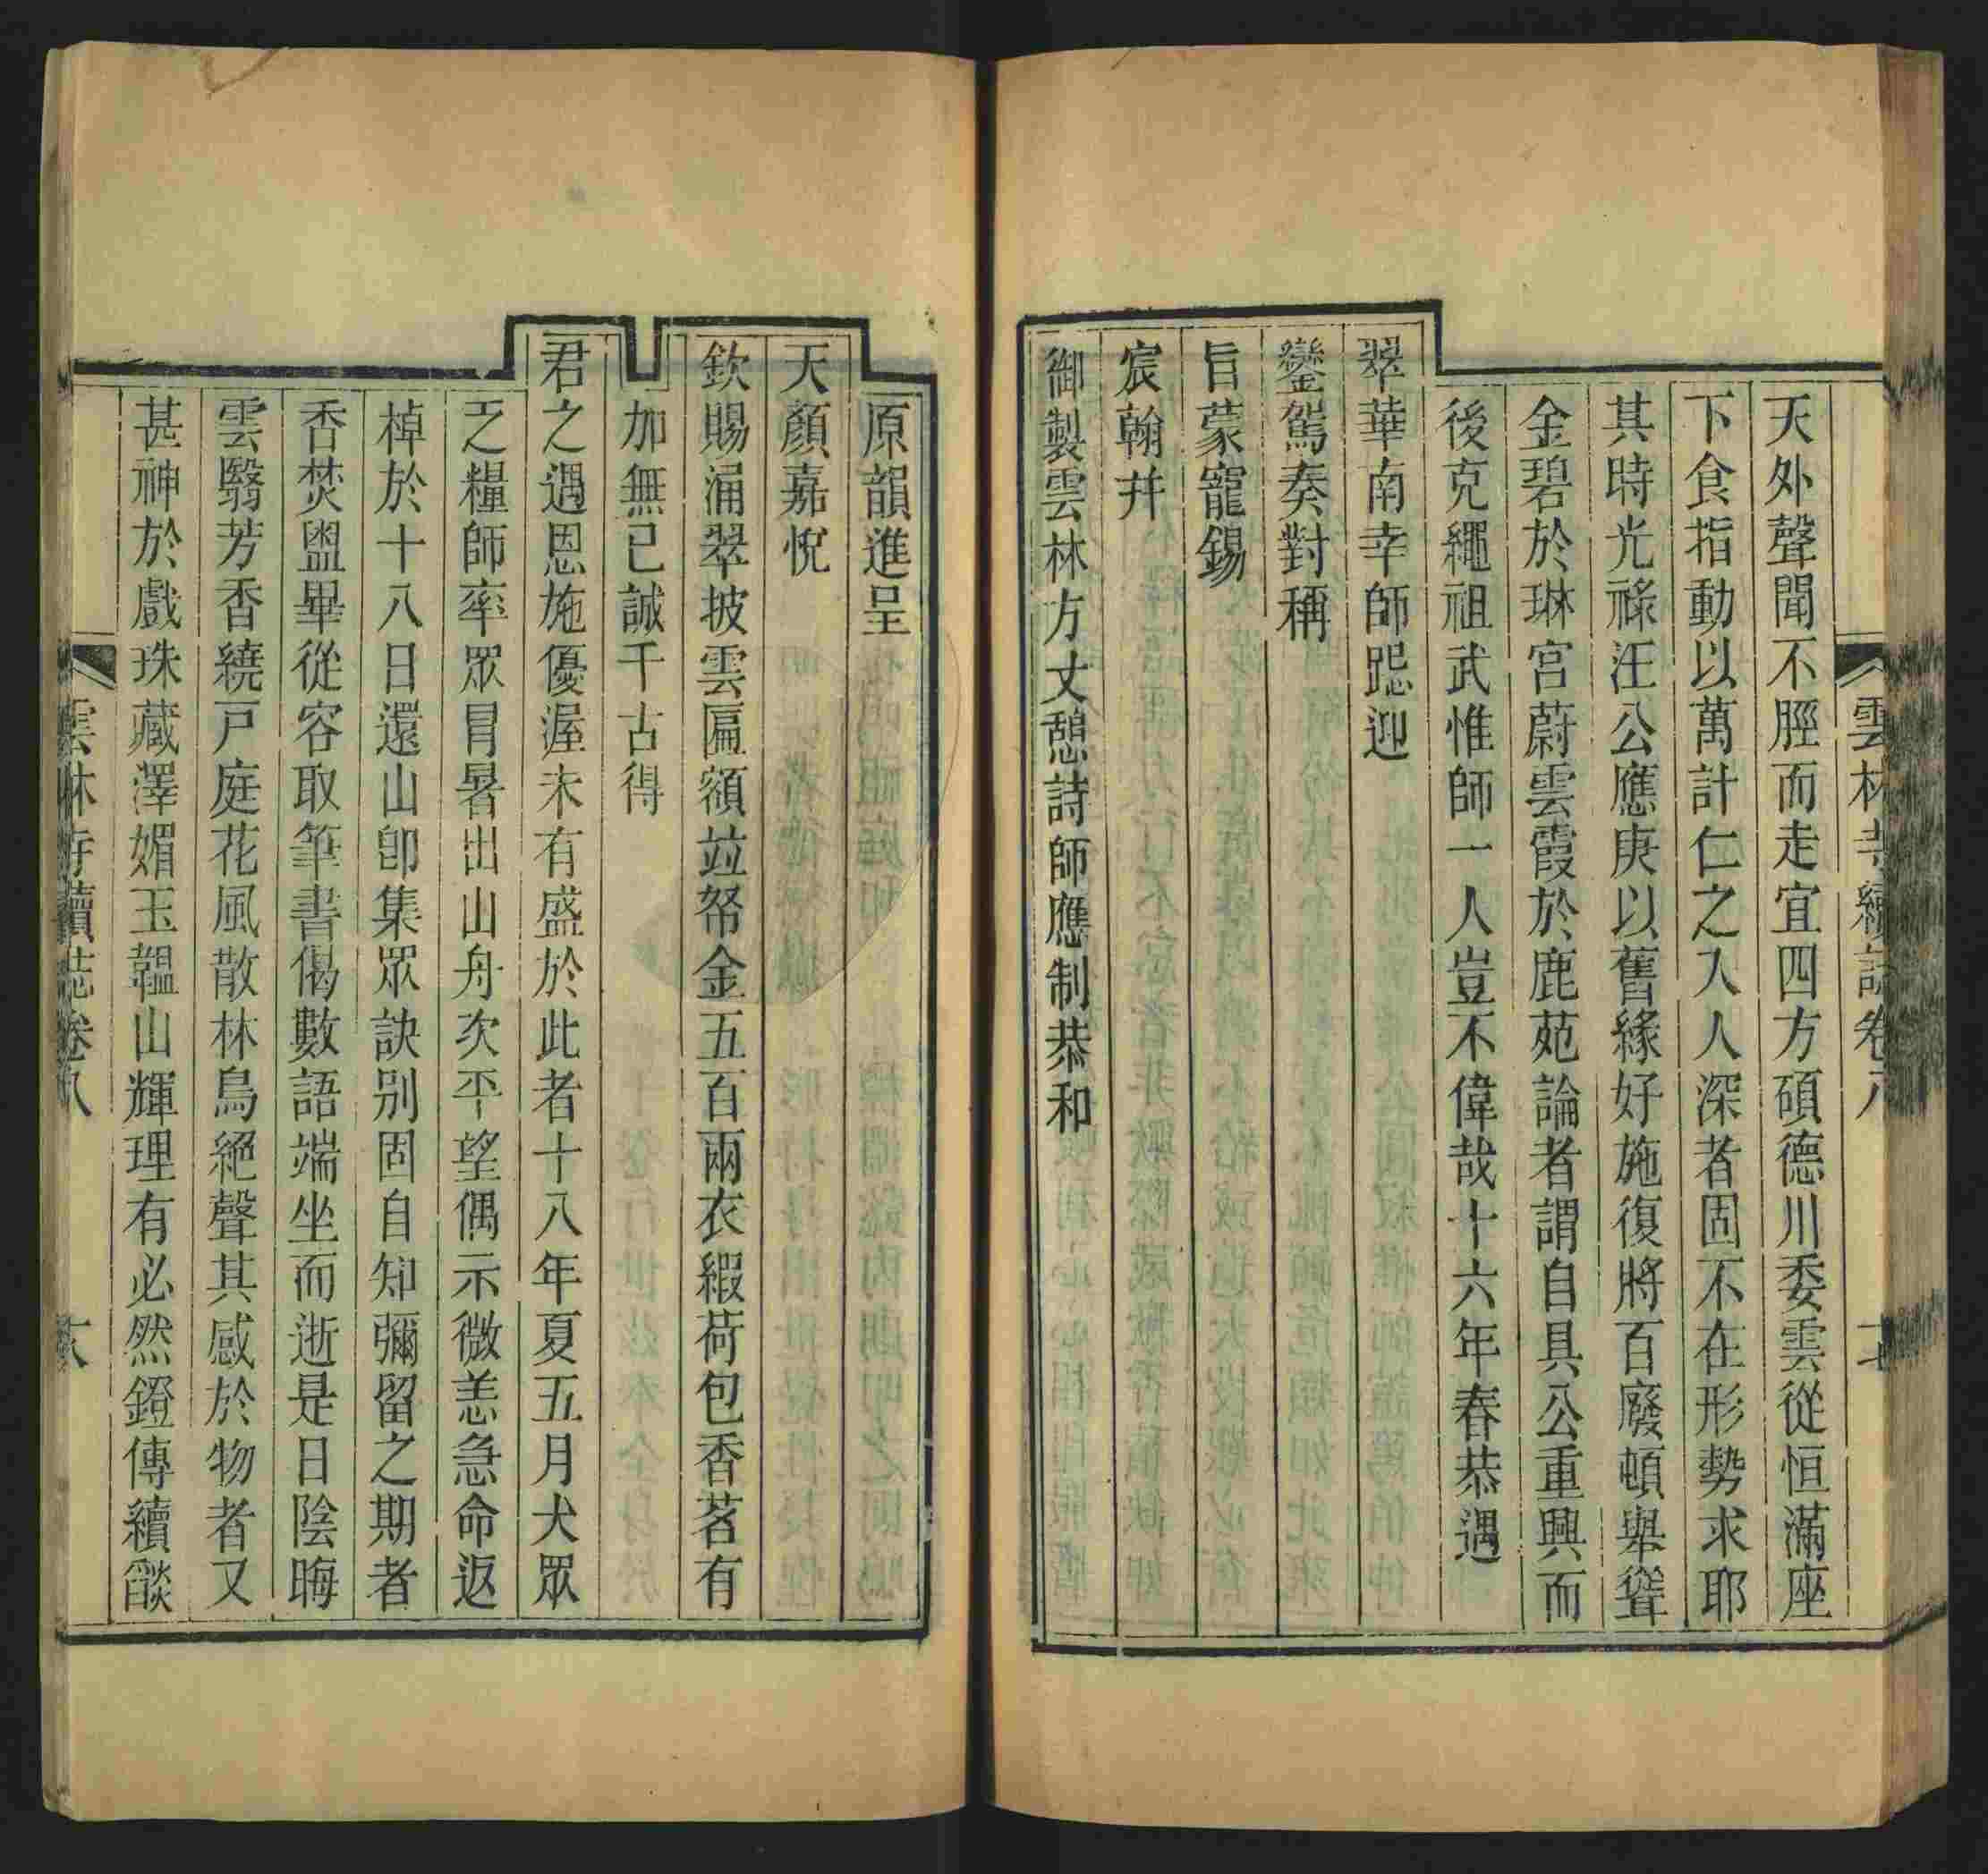 雲林寺續誌卷八
十七
天外聲聞不脛而走宜四方碩德川委雲從恒滿座
下食指動以萬計仁之入人深者固不在形勢求耶
其時光祿汪公應庚以舊緣好施復將百廢頓舉聳
金碧於琳宮蔚雲霞於鹿苑論者謂自具公重興而
後克繩祖武惟師一人豈不偉哉十六年春恭遇
翠華南幸師跽迎
鑾駕奏對稱
旨蒙寵錫
宸翰并
御製雲林方丈憩詩師應制恭和
原韻進呈
天顏嘉悅
欽賜涌翠披雲匾額竝帑金五百兩衣緞荷包香茗有
加無已誠千古得
君之遇恩施優渥未有盛於此者十八年夏五月犬眾
乏糧師率眾冒暑出山舟次平望偶示微恙急命返
棹於十八日還山卽集眾訣別固自知彌留之期者
香焚盥畢從容取筆書偈數語端坐而逝是日陰晦
雲翳芳香繞戸庭花風散林鳥絕聲其感於物者又
甚神於戲珠藏澤媚玉韞山輝理有必然鐙傳續燄
雲林寺續誌卷八
十八